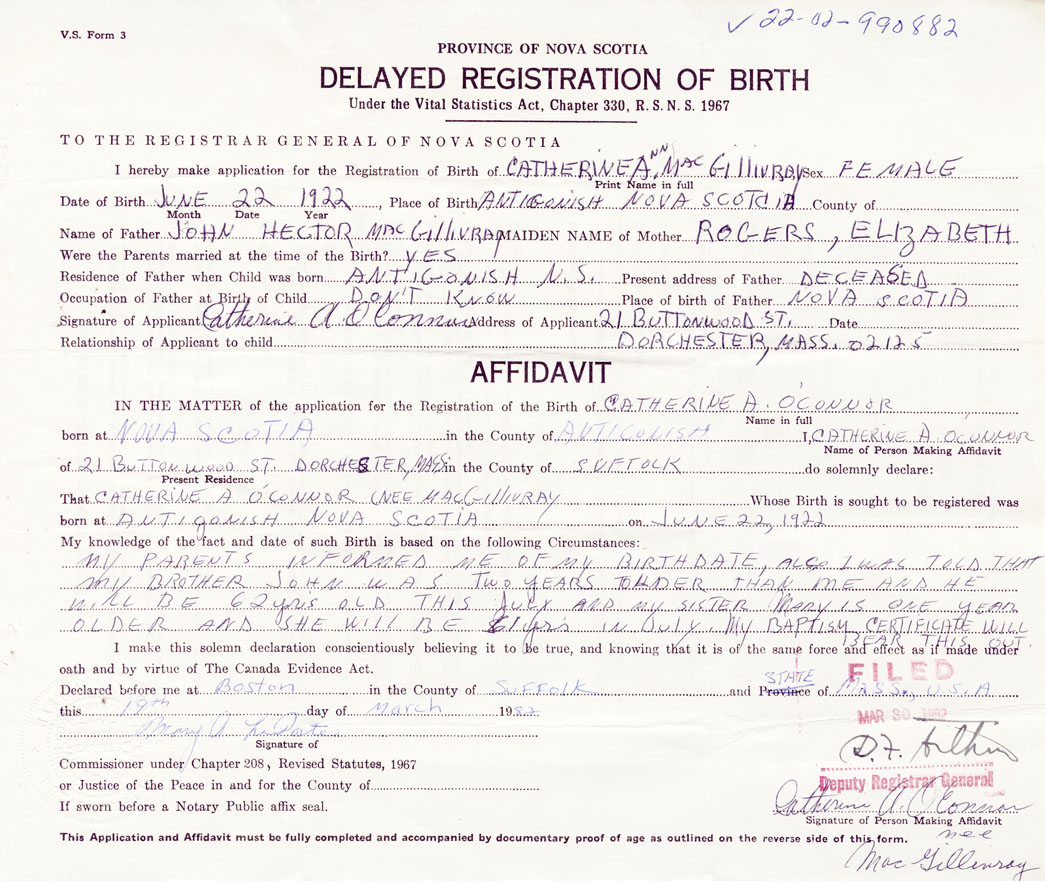 ✓ 22-02-990882
V.S. Form 3
PROVINCE OF NOVA SCOTIA
DELAYED REGISTRATION OF BIRTH
Under the Vital Statistics Act, Chapter 330, R. S. N. S. 1967
TO THE REGISTRAR GENERAL OF NOVA SCOTIA
I hereby make application for the Registration of Birth of CATHERINE ANN MacGILLIVRAY Sex FEMALE
Print Name in full
Date of Birth JUNE 22 1922, Place of Birth ANTIGONISH NOVA SCOTIA County of
Month Date Year
Name of Father JOHN HECTOR MACGILLIVRAY MAIDEN NAME of Mother ROGERS, ELIZABETH
Were the Parents married at the time of the Birth? YES
Residence of Father when Child was born ANTIGONISH N.S. Present address of Father DECEASED
Occupation of Father at Birth of Child DON'T KNOW Place of birth of Father NOVA SCOTIA
Signature of Applicant Catherine A O'Connor Address of Applicant 21 BUTTONWOOD ST. Date
Relationship of Applicant to child DORCHESTER, MASS. 02125
AFFIDAVIT
IN THE MATTER of the application for the Registration of the Birth of CATHERINE A. O'CONNOR
Name in full
born at NOVA SCOTIA in the County of ANTIGONISH I, CATHERINE A O'CONNOR
Name of Person Making Affidavit
of 21 BUTTONWOOD ST. DORCHESTER, MASS in the County of SUFFOLK do solemnly declare:
Present Residence
That CATHERINE A O'CONNOR (NEE MACGILLIVRAY Whose Birth is sought to be registered was
born at ANTIGONISH NOVA SCOTIA on JUNE 22, 1922
My knowledge of the fact and date of such Birth is based on the following Circumstances:
MY PARENTS INFORMED ME OF MY BIRTHDATE, ALSO I WAS TOLD THAT
MY BROTHER JOHN WAS TWO YEARS OLDER THAN ME AND HE
WILL BE 62 yrs OLD THIS JULY AND MY SISTER MARY IS ONE YEAR
OLDER AND SHE WILL BE 61 yrs IN JULY. MY BAPTISM CERTIFICATE WILL
BEAR THIS OUT
I make this solemn declaration conscientiously believing it to be true, and knowing that it is of the same force and effect as if made under
oath and by virtue of The Canada Evidence Act.
Declared before me at Boston in the County of Suffolk and Province STATE of Mass., U.S.A
FILED
this 19th day of March 1982
MAR 30 1982
Mary A
Signature of
D. F.
Commissioner under Chapter 208, Revised Statutes, 1967
Deputy Registrar General
or Justice of the Peace in and for the County of
Catherine A. O'Connor
Signature of Person Making Affidavit
If sworn before a Notary Public affix seal.
nee
This Application and Affidavit must be fully completed and accompanied by documentary proof of age as outlined on the reverse side of this form.
Mac Gillivray